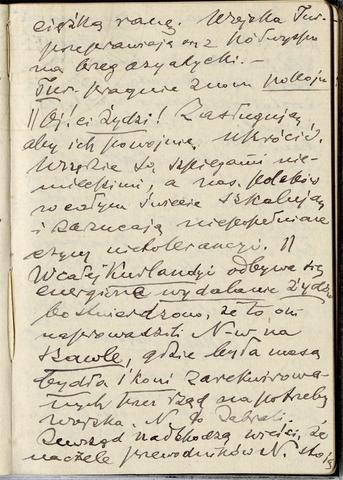 ciężką ranę. Wojska Tur.
przeprawiają się z półwyspu
na brzeg azyatycki. —
Tur. pragnie znow pokoju
|| Oj! ci żydzi! Zasługują,
aby ich powojnie ukrócić.
Wszędzie są szpiegami nie-
mieckimi, a nas, Polaków
w całym świecie szkalują
i zarzucają niepopełnione
czyny nietolerancyi. ||
W całej Kurlandyi odbywa się
energiczne wydalanie żydów
bo stwierdzono, że to oni
naprowadzili N-w na
Szawle, gdzie była masa
bydła i koni zarekwirowa-
nych przez rząd na potrzeby
wojska. N. to zabrali.
Zewsząd nadchodzą wieści, że
na czele przewodników N.